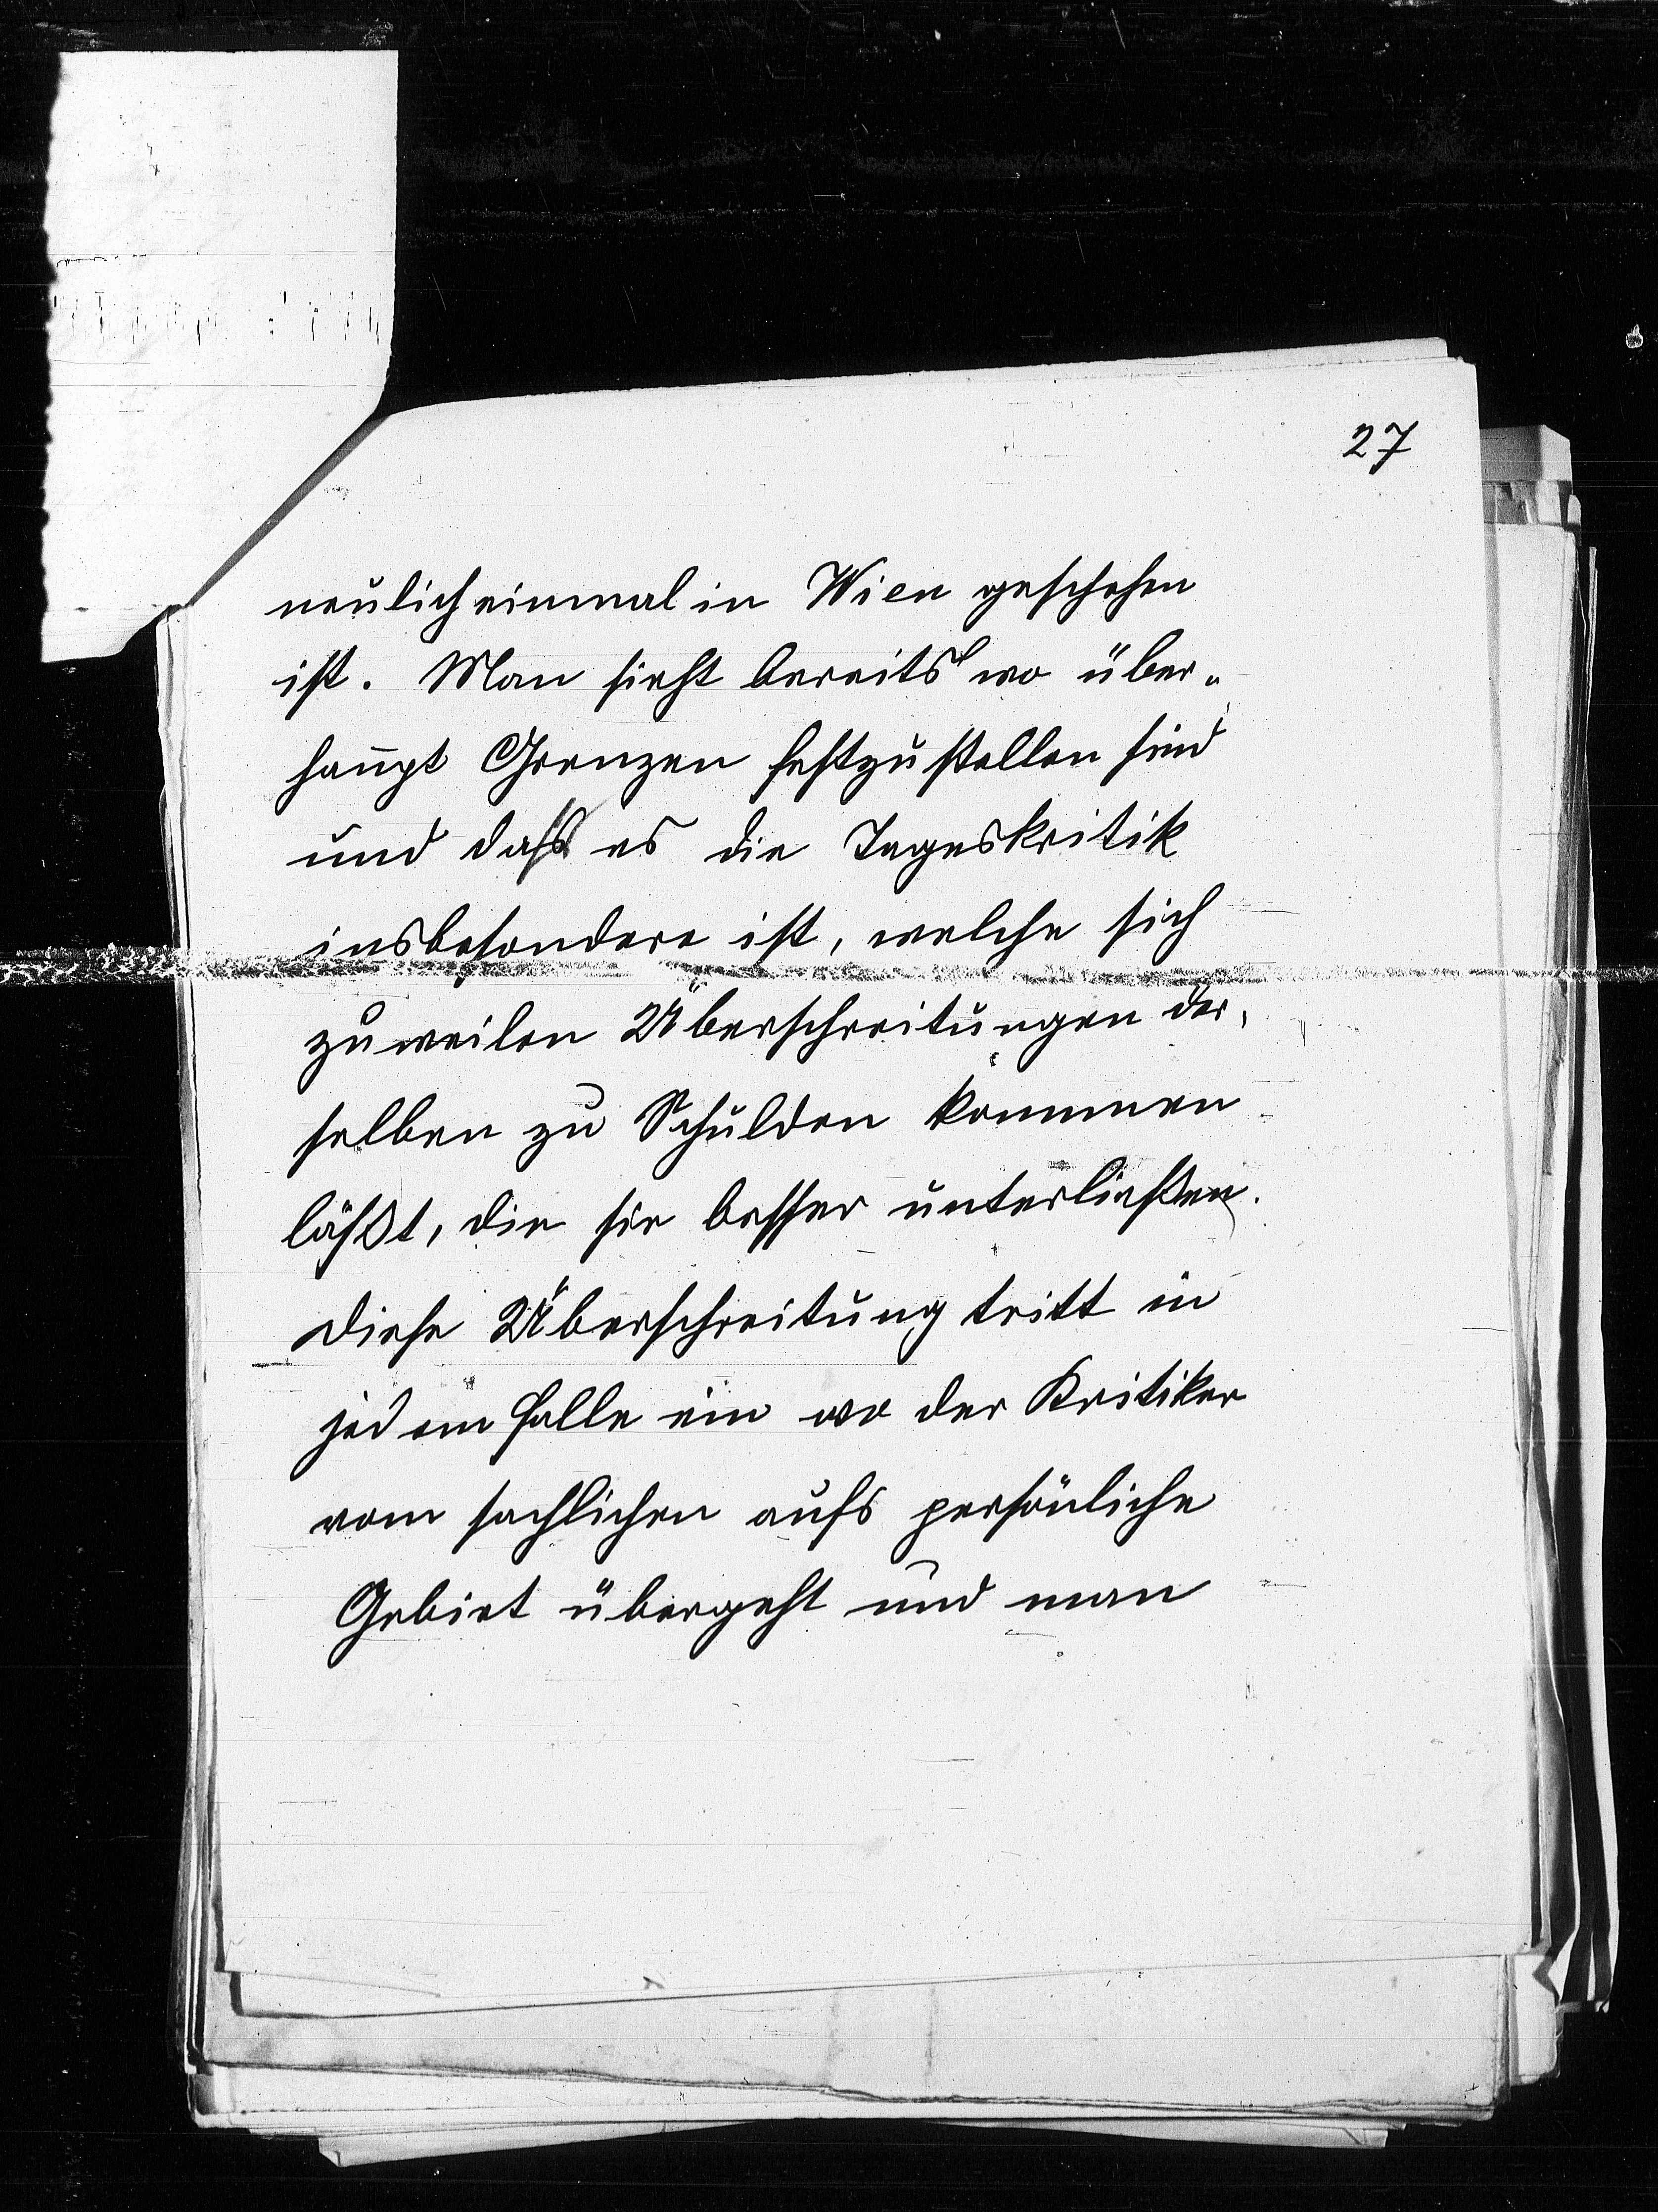 27
neulich einmal in Wien geschehen
ist. Man sieht bereits wo über-
haupt Grenzen festzustellen sind
und dass es die Tageskritik
insbesondere ist, welche sich
zuweilen Überschreitungen der-
selben zu Schulden kommen
läßt, die sie besser unterließen.
Diese Überschreitung tritt in
jedem Falle ein wo der Kritiker
vom sachlichen aufs persönliche
Gebiet übergeht und man